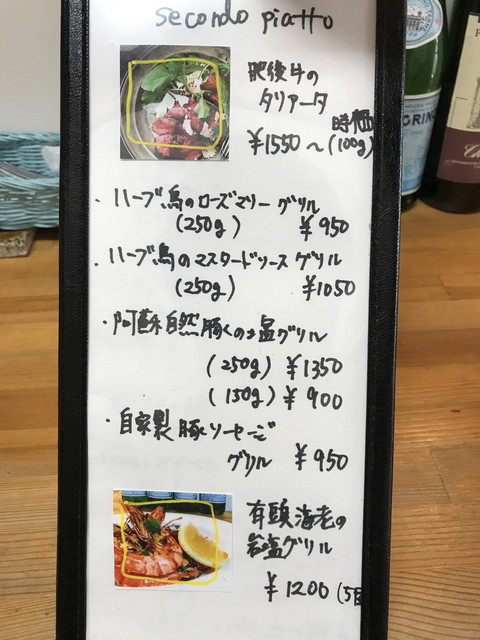 secondo piatto
肥後牛の
タリアータ
時価
¥1550～(100g)
・ハーブ鳥のローズマリーグリル
(250g) ¥950
・ハーブ鳥のマスタードソースグリル
(250g) ¥1050
・阿蘇自然豚くの塩グリル
(250g) ¥1350
(150g) ¥900
・自家製豚ソーセージ
グリル ¥950
有頭海老の
岩塩グリル
¥1200 (5
GRIN